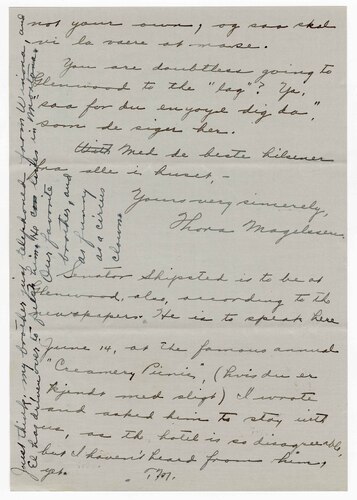 not your own, og saa skal
vi la vaere at mase.
You are doubtless going to
Glenwood to the "lag"? Ye,
saa faar du enyoye dig da,"
som de siger her.
Med de beste hilsener
fra alle i huset, -
Yours very sincerely,
Thora Magelssen.
Senator Shipsted is to be at
Glenwood, also, according to the
newspapers. He is to speak here
June 14, at the famous annual
"Creamery Picnic," (hvis du er
kjendt med sligt) I wrote
and asked him to stay with
us, as the hotel is so disagreeable,
but I haven't heard from him,
yet. T.M.
Just think, my brother telephoned from Winona, and
El has driven over to fetch him. He
Our favorite
brother, and
as funny
as a circus
clown.